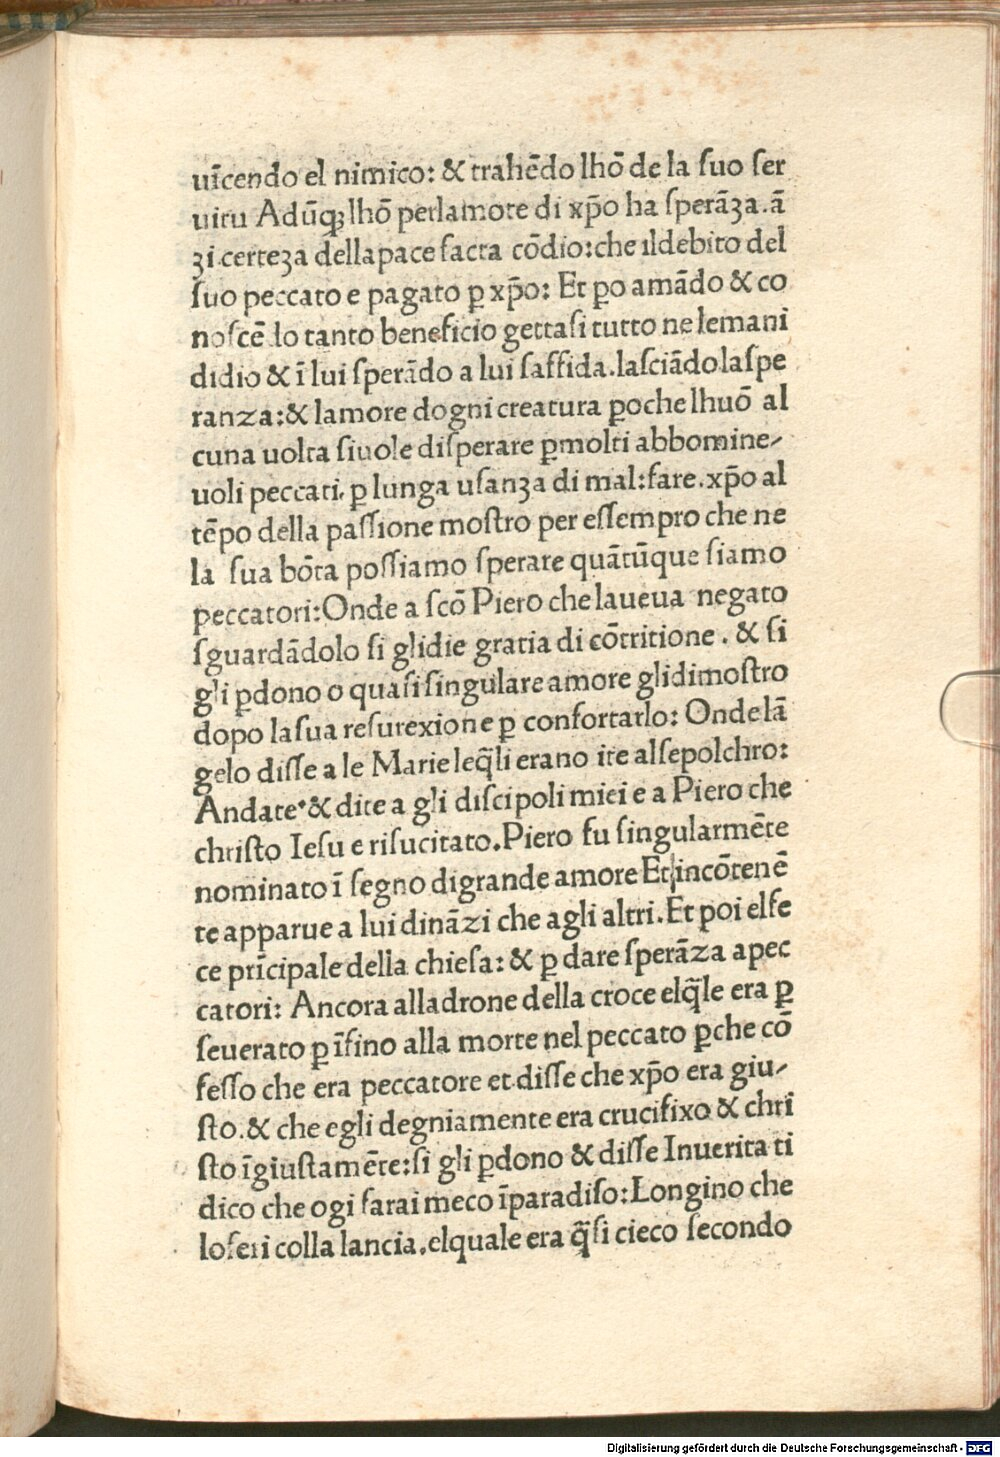 uīcendo el nimico: & trahēdo lhō de la ſuo ſer
uitu Adūqꝫ lhō perlamore di xp̄o ha ſperāʒa.ā
ʒi.certeʒa dellapace facta cōdio:che ildebito del
ſuo peccato e pagato ꝑ xp̄o: Et ꝑo amādo & co
noſcēdo tanto beneficio gettaſi tutto ne lemani
didio & ī lui ſperādo a lui ſaffida.laſciādo laſpe
ranza:& lamore dogni creatura ꝑoche lhuō al
cuna uolta ſiuole diſperare ꝑmolti abbomine-
uoli peccati, ꝑ lunga uſanʒa di mal:fare.xp̄o al
tēpo della paſſione moſtro per eſſempro che ne
la ſua bōta poſſiamo ſperare quātūque ſiamo
peccatori:Onde a ſcō Piero che laueua negato
ſguardādolo ſi glidie gratia di cōtritione. & ſi
gli ꝑdono o quaſi ſingulare amore glidimoſtro
dopo la ſua reſurexione ꝑ confortarlo: Onde lā
gelo diſſe a le Marie leq̄li erano ite alſepolchro:
Andate & dite a gli diſcipoli miei e a Piero che
chriſto Ieſu e riſucitato.Piero fu ſingularmēte
nominato ī ſegno digrande amore Et incōtenē
te apparue a lui dināzi che agli altri.Et poi elfe
ce prīcipale della chieſa: & ꝑ dare ſperāza apec
catori: Ancora alladrone della croce elq̄le era ꝑ
ſeuerato ꝑ īfino alla morte nel peccato ꝑche cō
feſſo che era peccatore et diſſe che xp̄o era giu-
ſto.& che egli degniamente era crucifixo & chri
ſto īgiuſtamēte:ſi gli ꝑdono & diſſe Inuerita ti
dico che ogi ſarai meco īparadiſo:Longino che
loferi colla lancia.elquale era q̄ſi cieco ſecondo
Digitalisierung gefördert durch die Deutsche Forschungsgemeinschaft - DFG